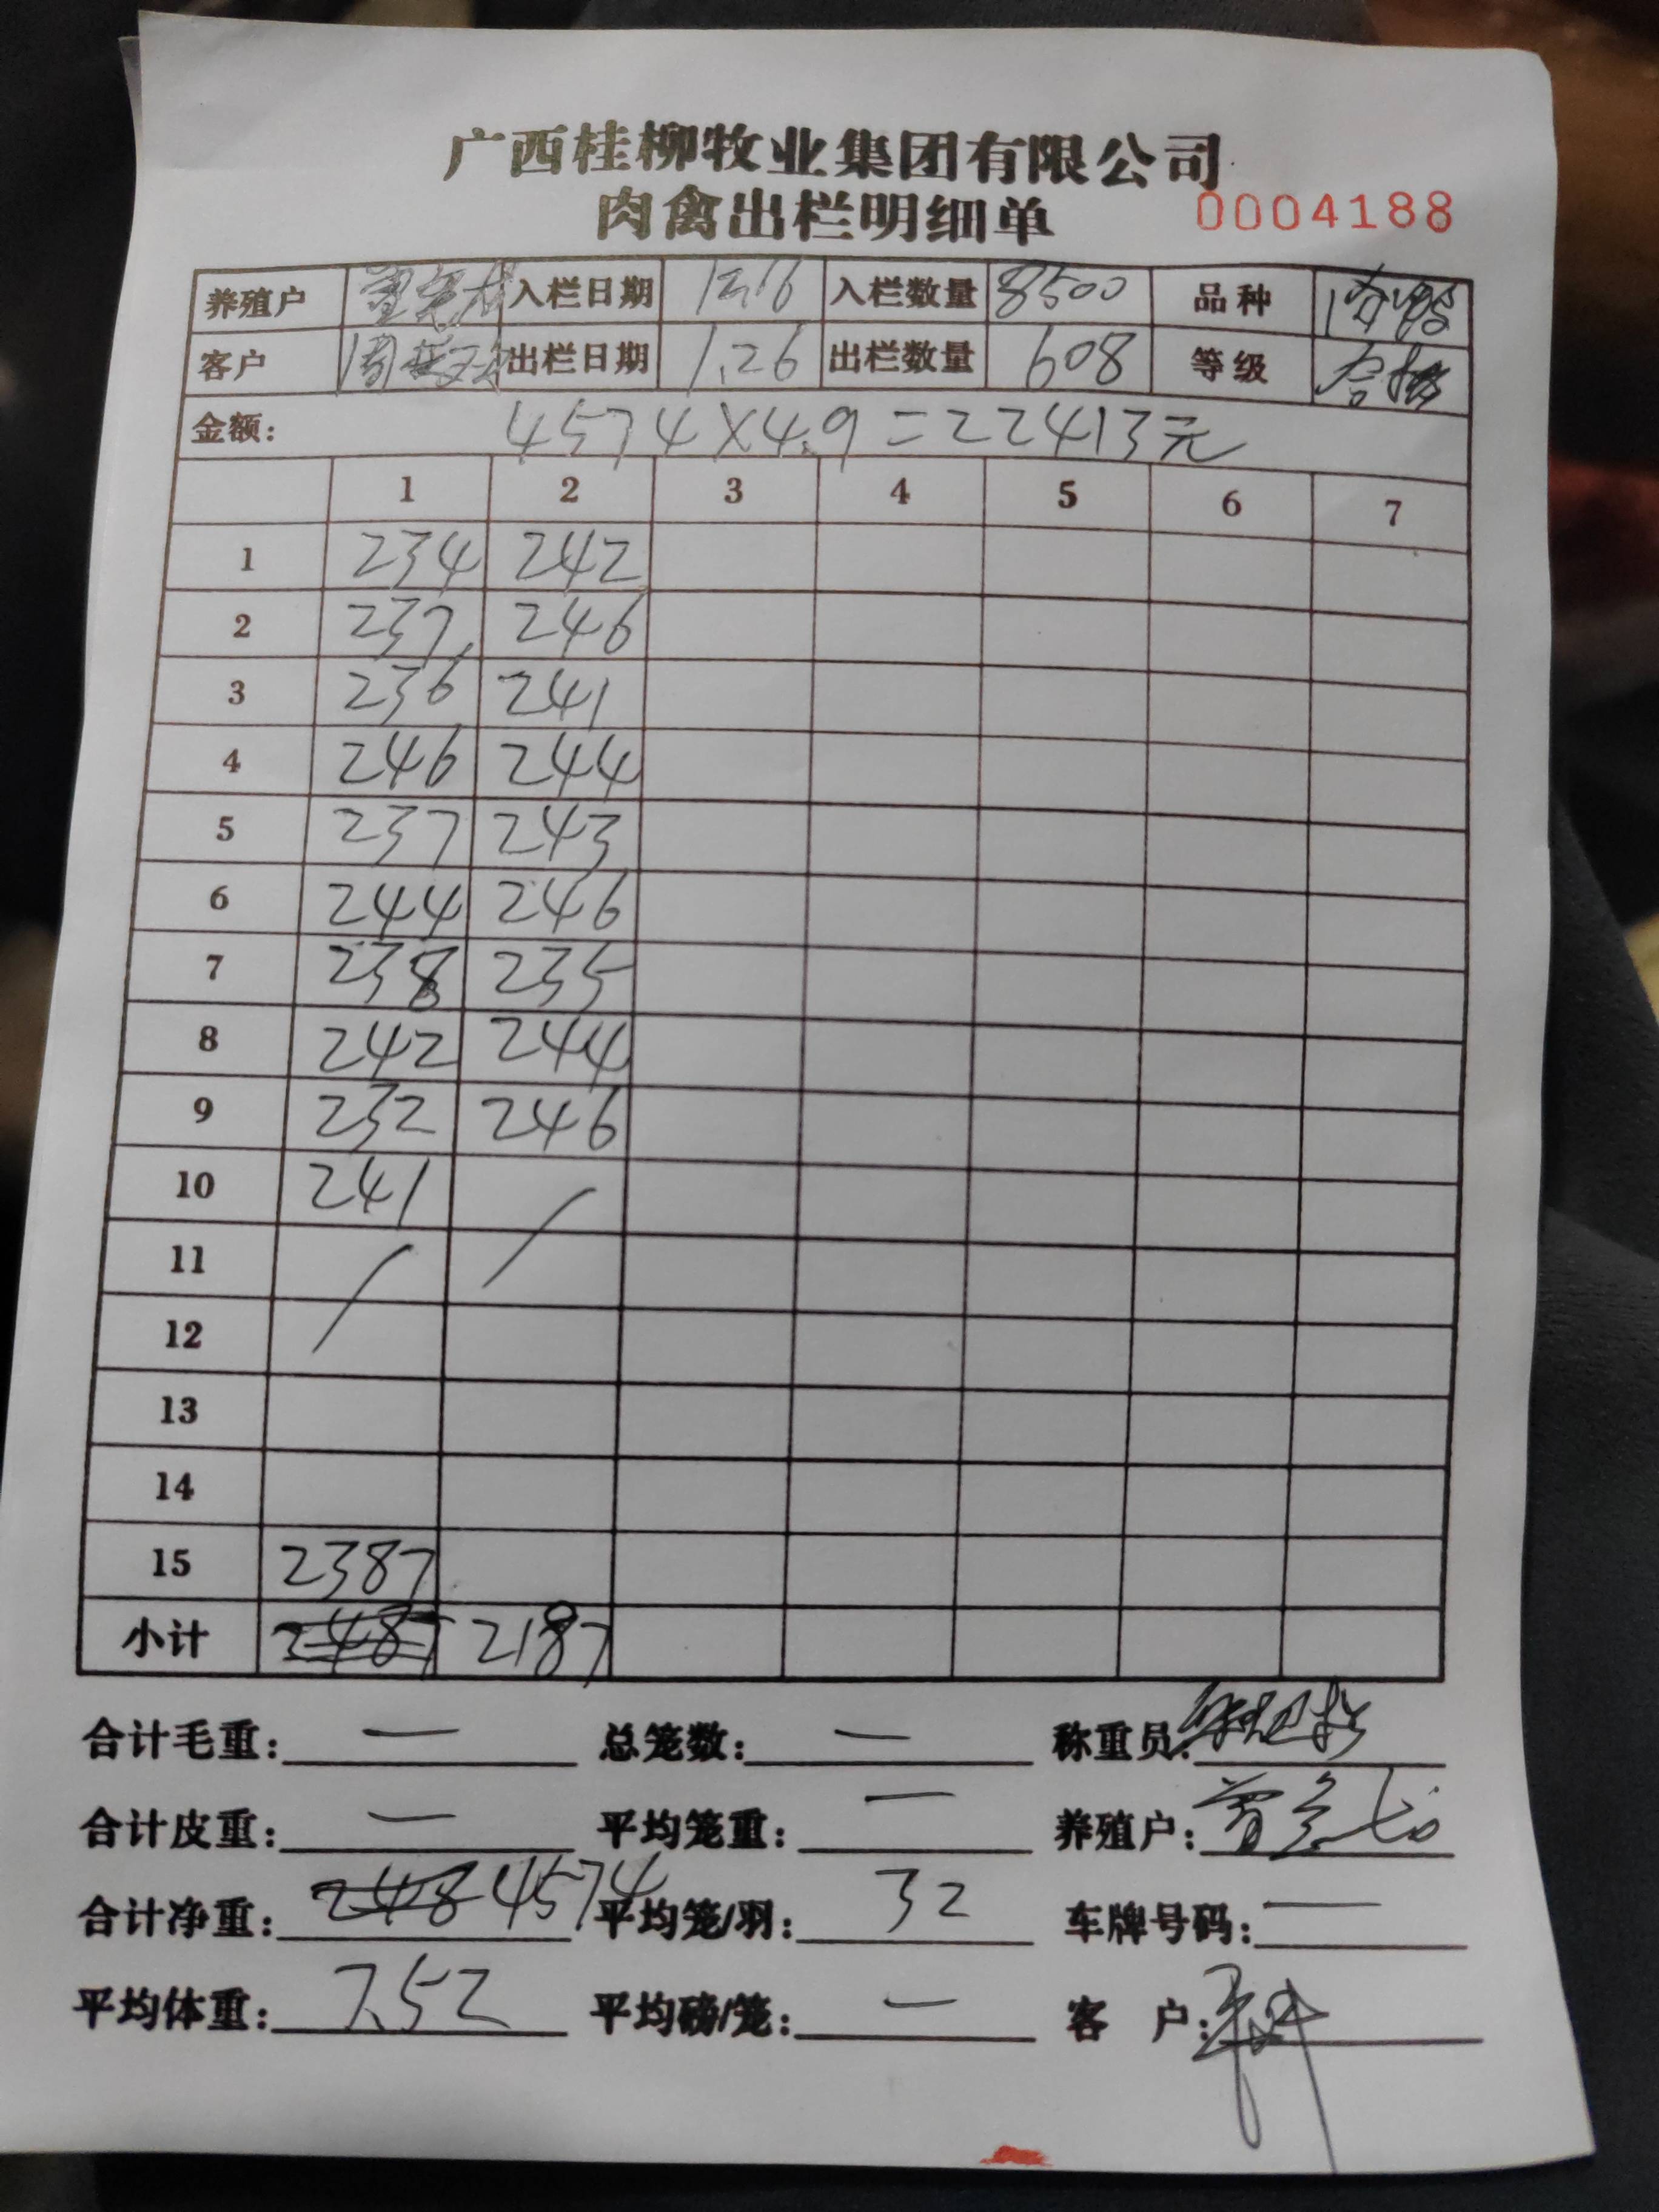 广西桂柳牧业集团有限公司
肉禽出栏明细单 0004188
养殖户 入栏日期 入栏数量 8500 品种 肉鸭
客户 周 出栏日期 1.26 出栏数量 608 等级 合格
金额: 4574×4.9=22413元
1 2 3 4 5 6 7
1 234 242
2 237 246
3 236 241
4 246 244
5 237 243
6 244 246
7 238 235
8 242 244
9 232 246
10 241
11
12
13
14
15 2387
小计 2487 2187
合计毛重: — 总笼数: — 称重员:
合计皮重: — 平均笼重: — 养殖户: 曾
合计净重: 248 4574 平均笼/羽: 32 车牌号码: —
平均体重: 7.52 平均磅/笼: — 客户: